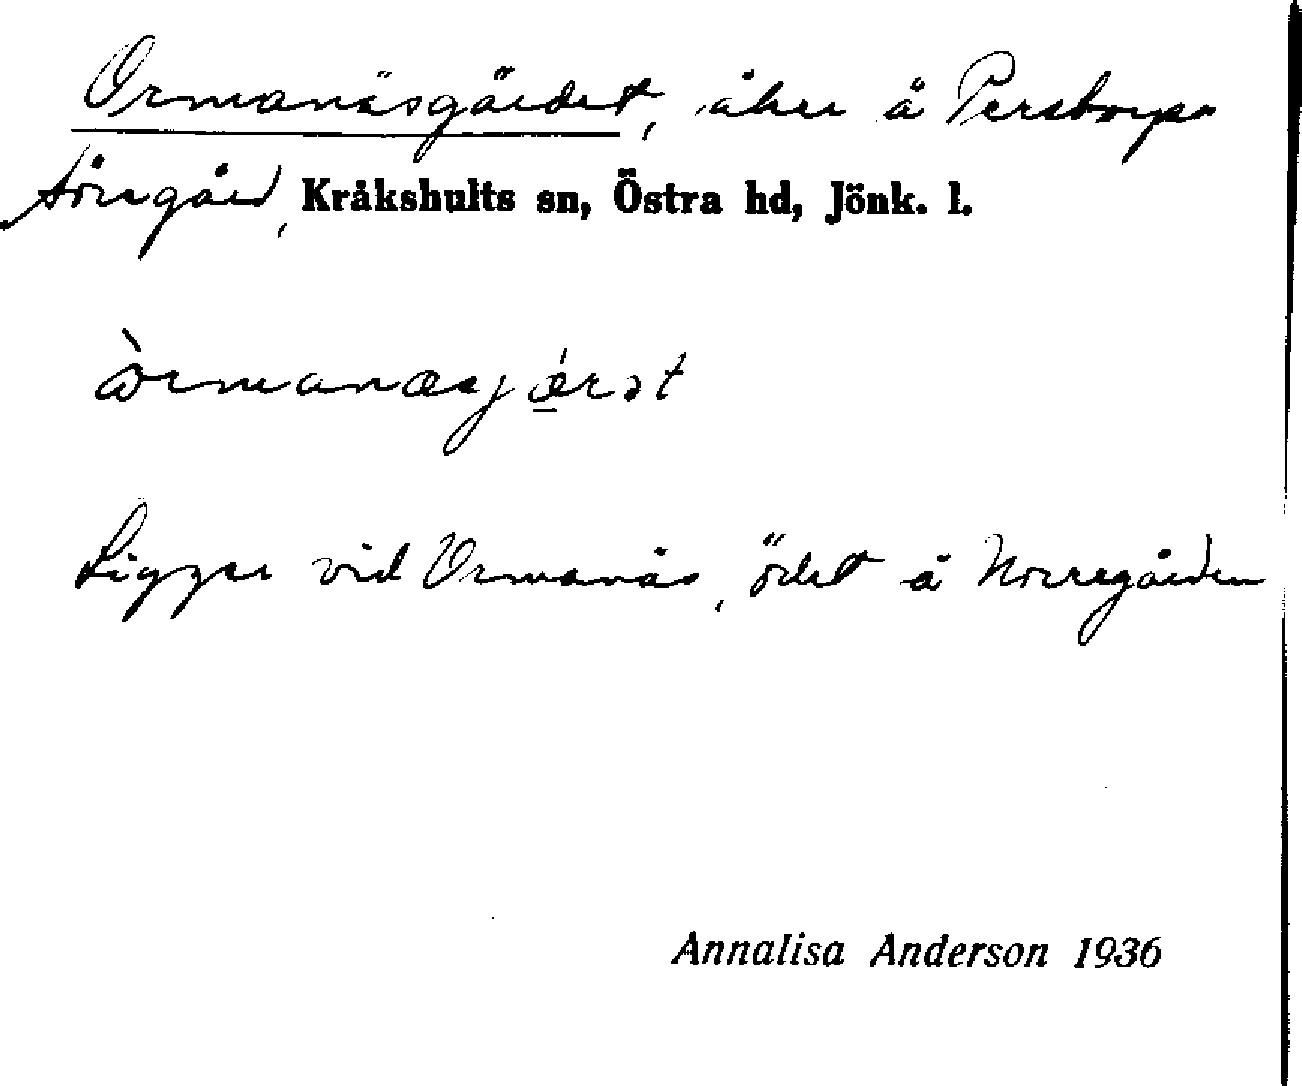 Ormanäsgärdet, åker å Perstorps
Sörgård, Kråkshults sn, Östra hd, Jönk. l.
òrmanæsjǽrət
Ligger vid Ormanäs, ödet å Norregården
Annalisa Anderson 1936